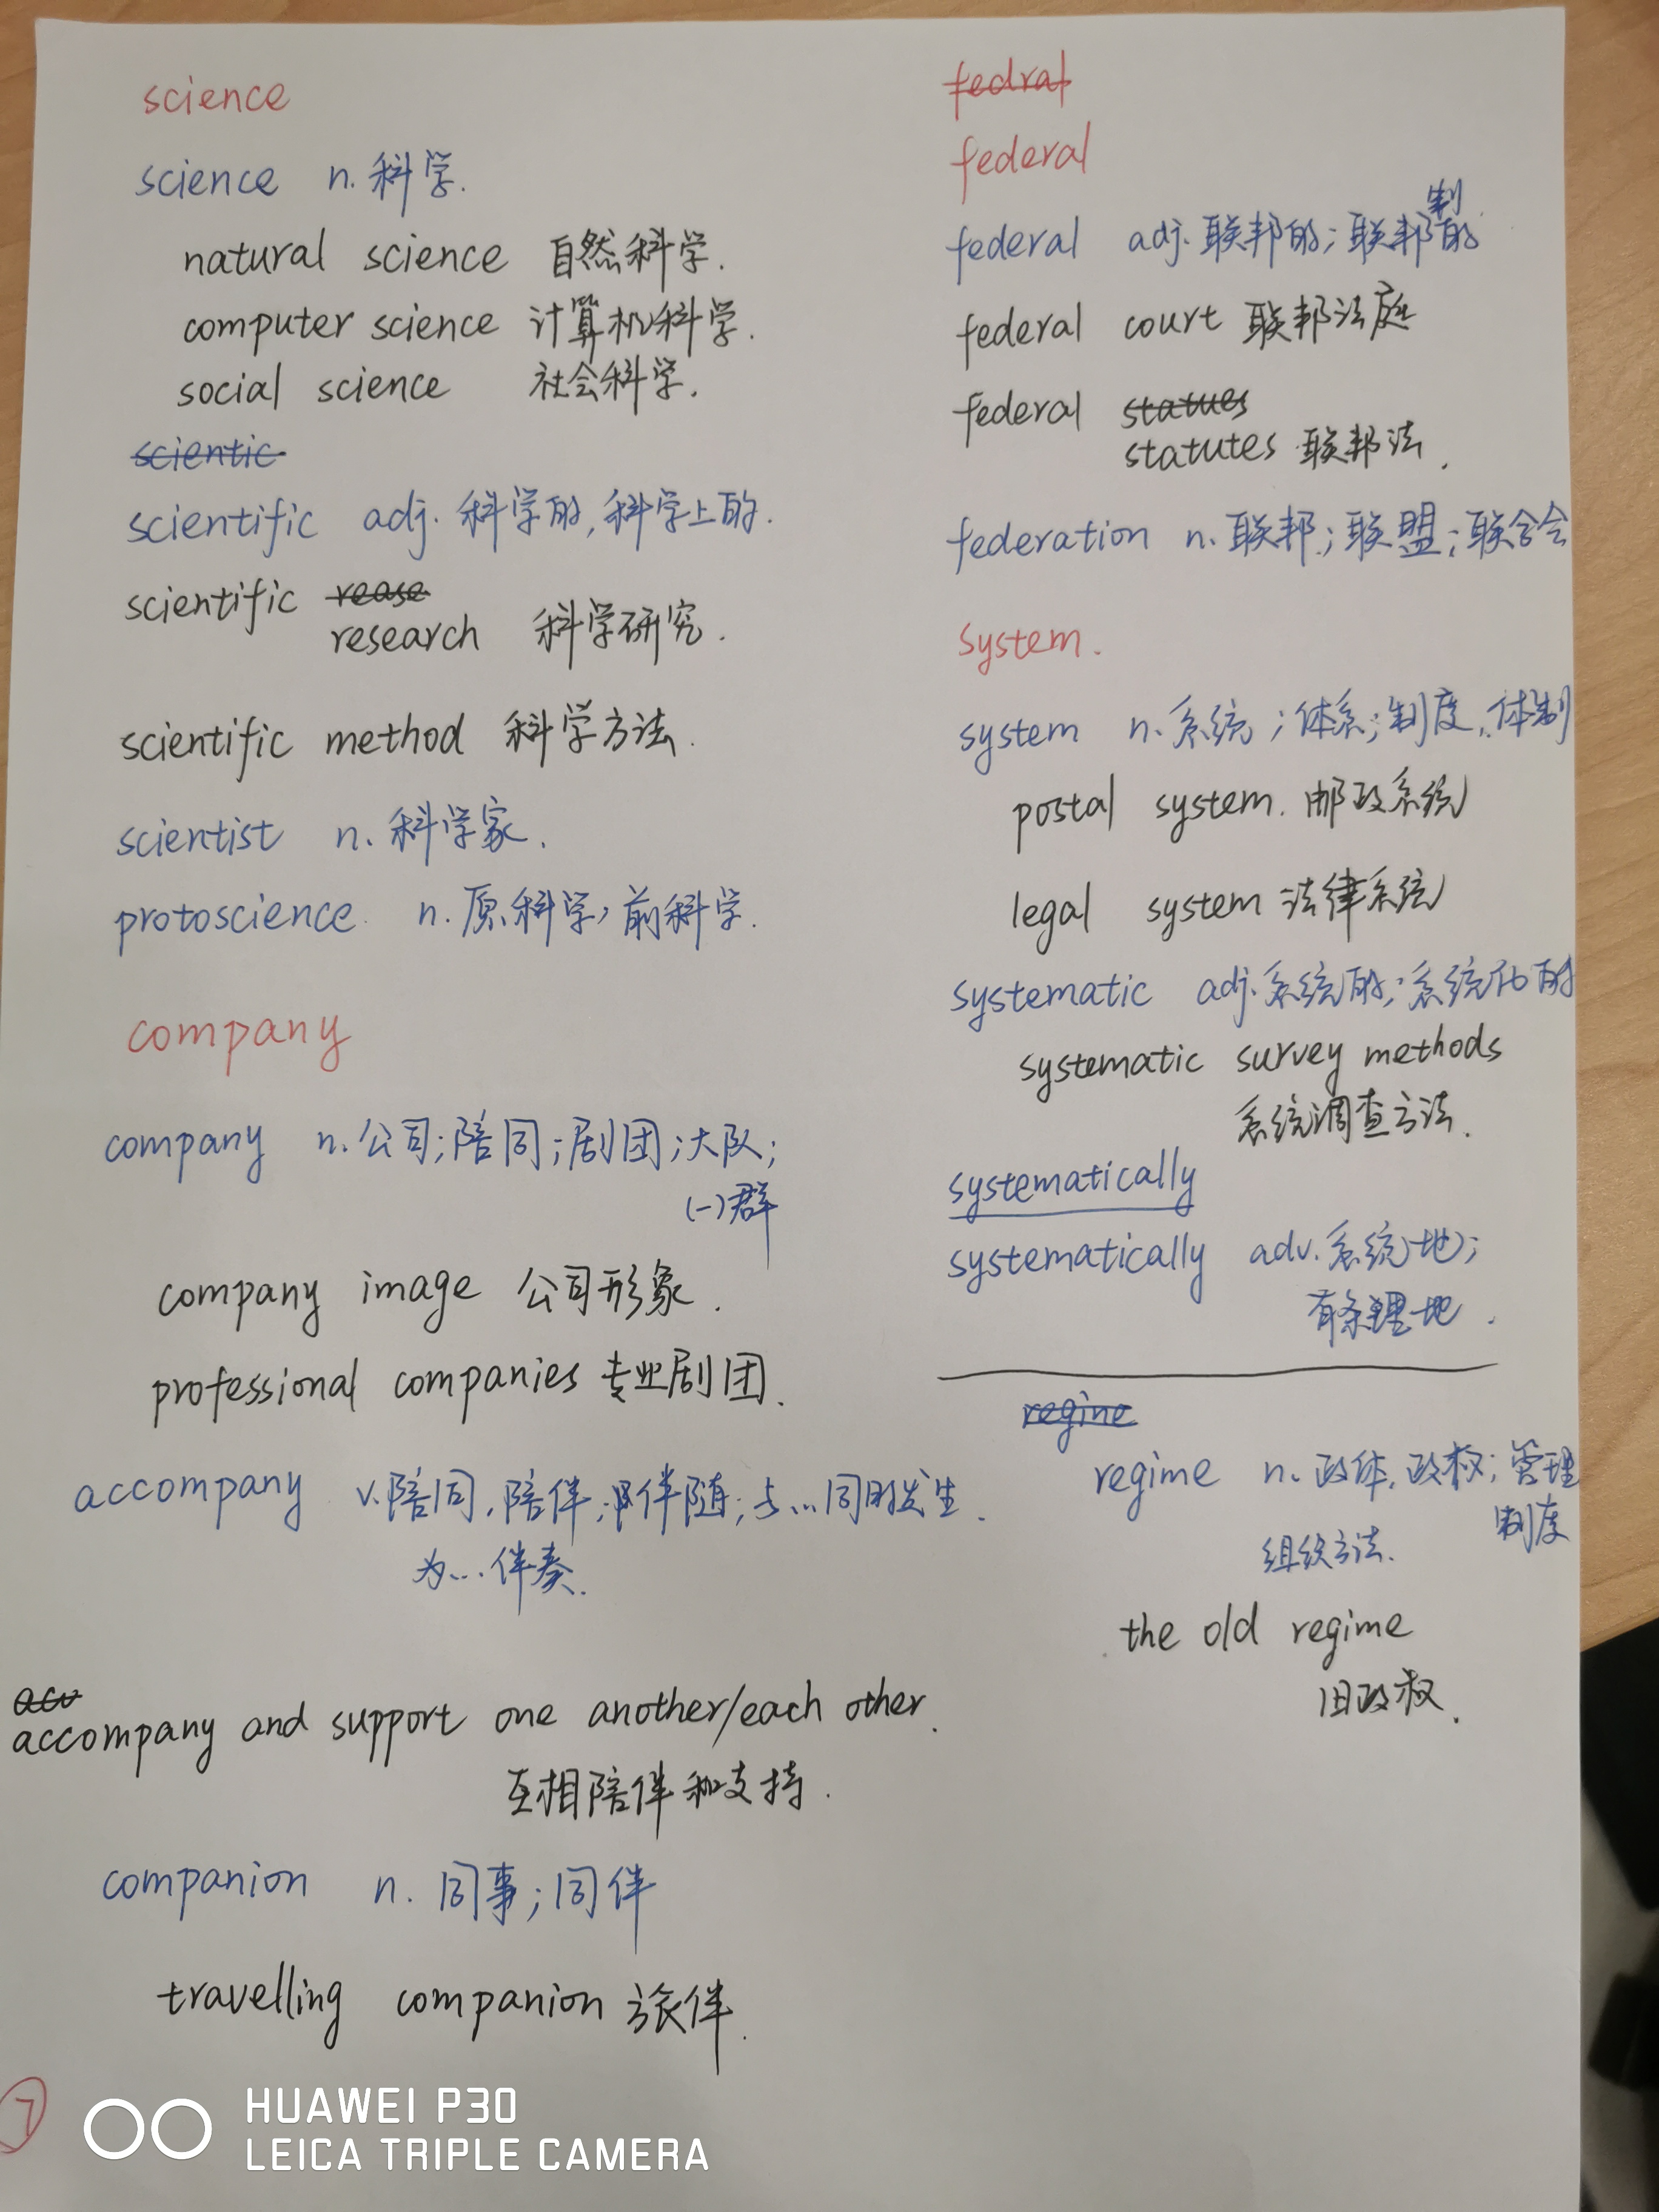 science
science n. 科学.
natural science 自然科学.
computer science 计算机科学.
social science 社会科学.
scientic
scientific adj. 科学的,科学上的.
scientific rease
research 科学研究.
scientific method 科学方法.
scientist n. 科学家.
protoscience n. 原科学,前科学.
company
company n. 公司;陪同;剧团;大队;
(一)群
company image 公司形象.
professional companies 专业剧团.
accompany v. 陪同,陪伴;伴随;与...同时发生.
为...伴奏.
acu
accompany and support one another/each other.
互相陪伴和支持.
companion n. 同事;同伴
travelling companion 旅伴.
fedral
federal
制
federal adj. 联邦的;联邦的
federal court 联邦法庭
federal statues
statutes 联邦法.
federation n. 联邦;联盟;联合会
system.
system n. 系统;体系;制度,体制
postal system. 邮政系统
legal system 法律系统
systematic adj. 系统的;系统化的
systematic survey methods
系统调查方法.
systematically
systematically adv. 系统地;
有条理地.
regine
regime n. 政体,政权;管理
制度
组织方法.
the old regime
旧政权.
7
HUAWEI P30
LEICA TRIPLE CAMERA